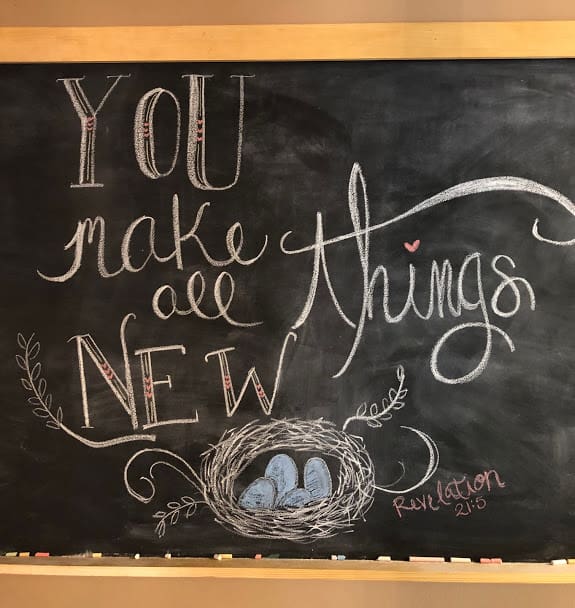 YOU
make
all things
NEW
Revelation
21:5